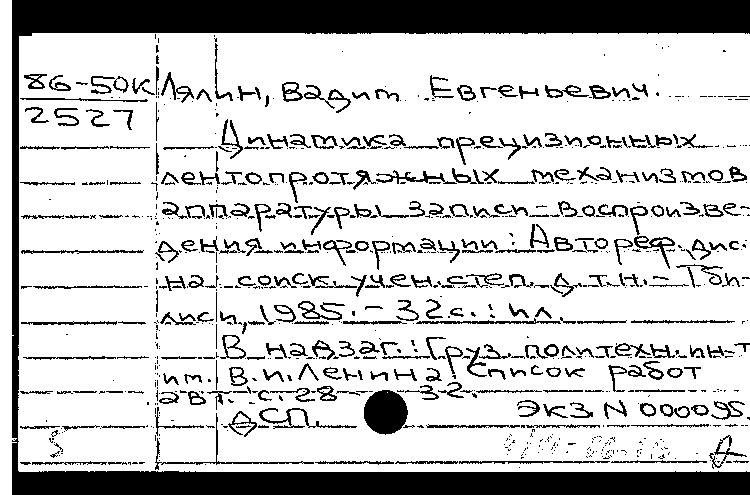 86-50К Лялин, Вадим Евгеньевич.
2527
Динамика прецизионных
лентопротяжных механизмов
аппаратуры записи-воспроизве-
дения информации: Автореф. дис.
на соиск. учен. степ. д.т.н. - Тби-
лиси, 1985. - 32 с. : ил.
В надзаг.: Груз. политехн. ин-т
им. В.И. Ленина. Список работ
авт.: с. 28 - 32.
ДСП. экз. N 000095.
S